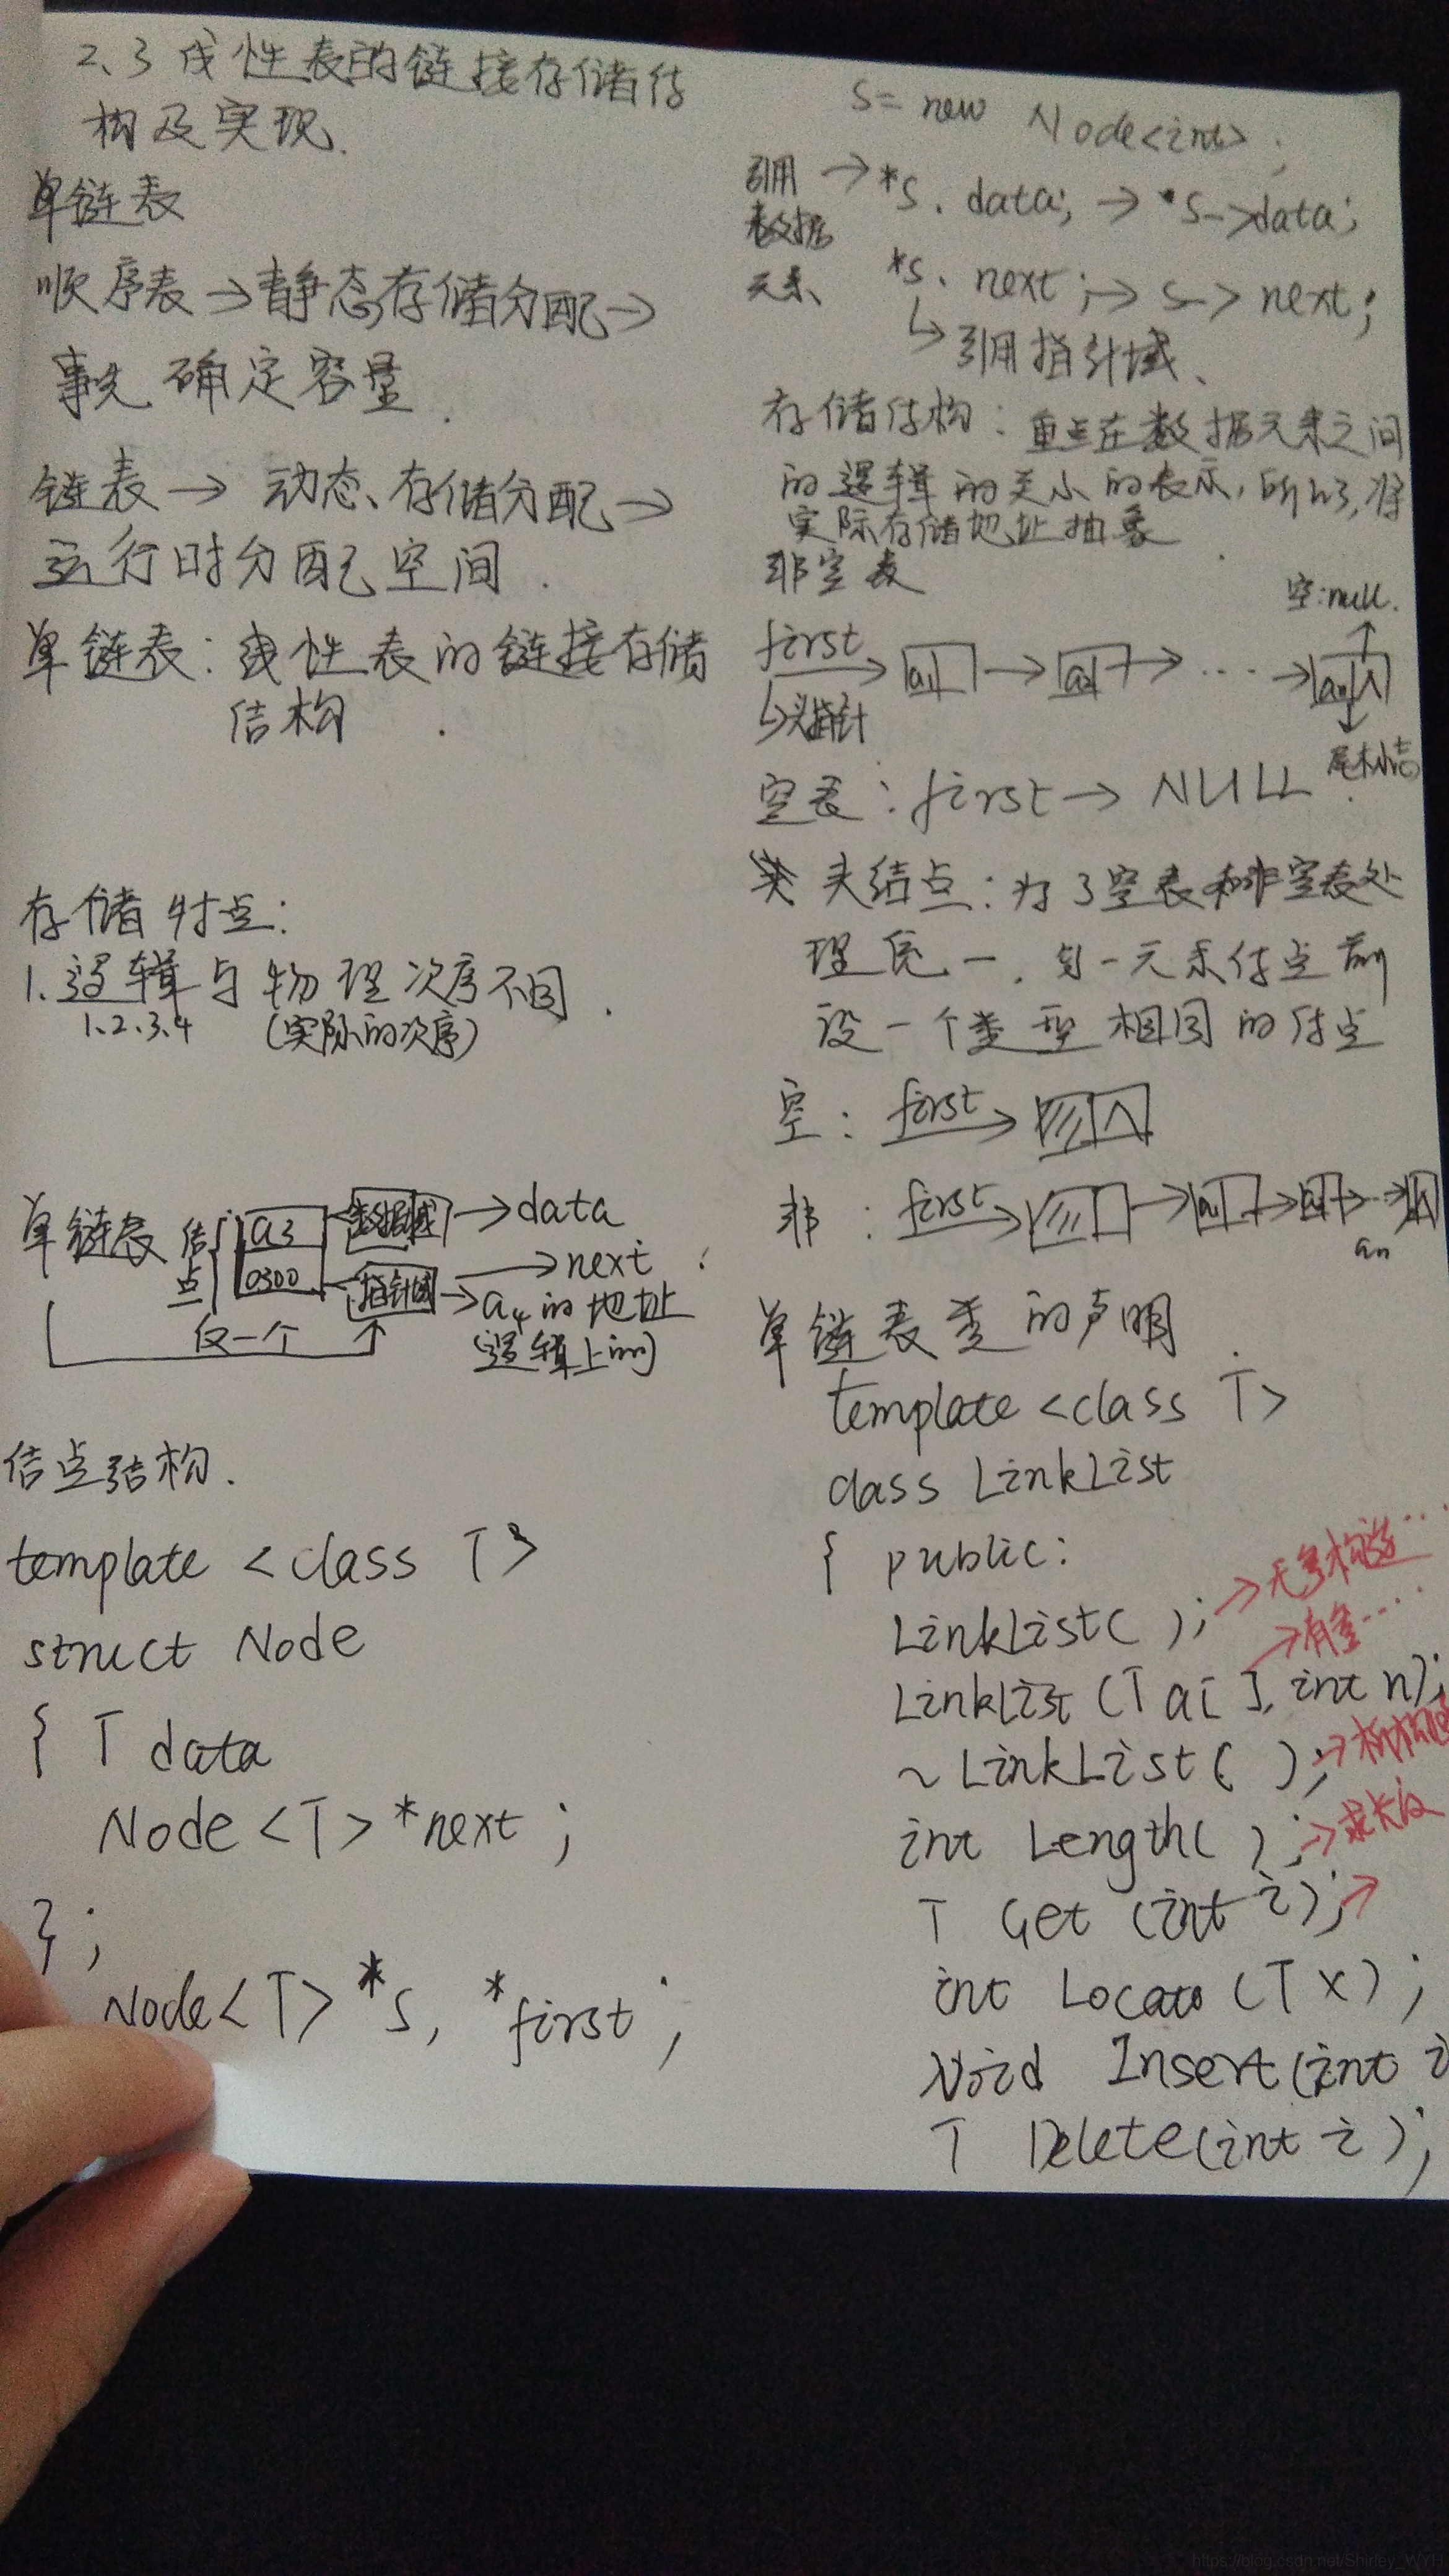 2、3 线性表的链接存储结
构及实现.
单链表
顺序表→静态存储分配→
事先确定容量.
链表→ 动态、存储分配→
运行时分配空间.
单链表:线性表的链接存储
结构.
存储特点:
1.逻辑与物理次序不同.
1.2.3.4 (实际的次序)
单链表 结点 a3 数据域 →data
0300 指针域 →next
→a4的地址
仅一个 (逻辑上的)
结点结构.
template <class T>
struct Node
{ T data
Node<T> *next;
};
Node<T> *s, *first;
s= new Node<int>;
引用 → *s. data; → *s->data;
数据
元素、 *s. next; → s-> next;
↳引用指针域、
存储结构:重点在数据元素之间
的逻辑的关系的表示,所以,将
实际存储地址抽象.
非空表
空:null.
first → a1 → a2 → ··· → an ∧
↳头指针
尾标志
空表:first→ NULL.
头结点:为了空表和非空表处
理统一.
设一个类型相同的结点
空: first → ∧
非: first → a1 → ··· → ∧
an
单链表类的声明.
template <class T>
class LinkList
{ public:
LinkList( ); →无参构造···
→有参····
LinkList (T a[ ], int n);
~LinkList( ); →析构
int Length( ); →求长度
T Get (int i); →
int Locate (T x);
Void Insert(int i
T Delete(int i);
https://blog.csdn.net/Shirley_WYH